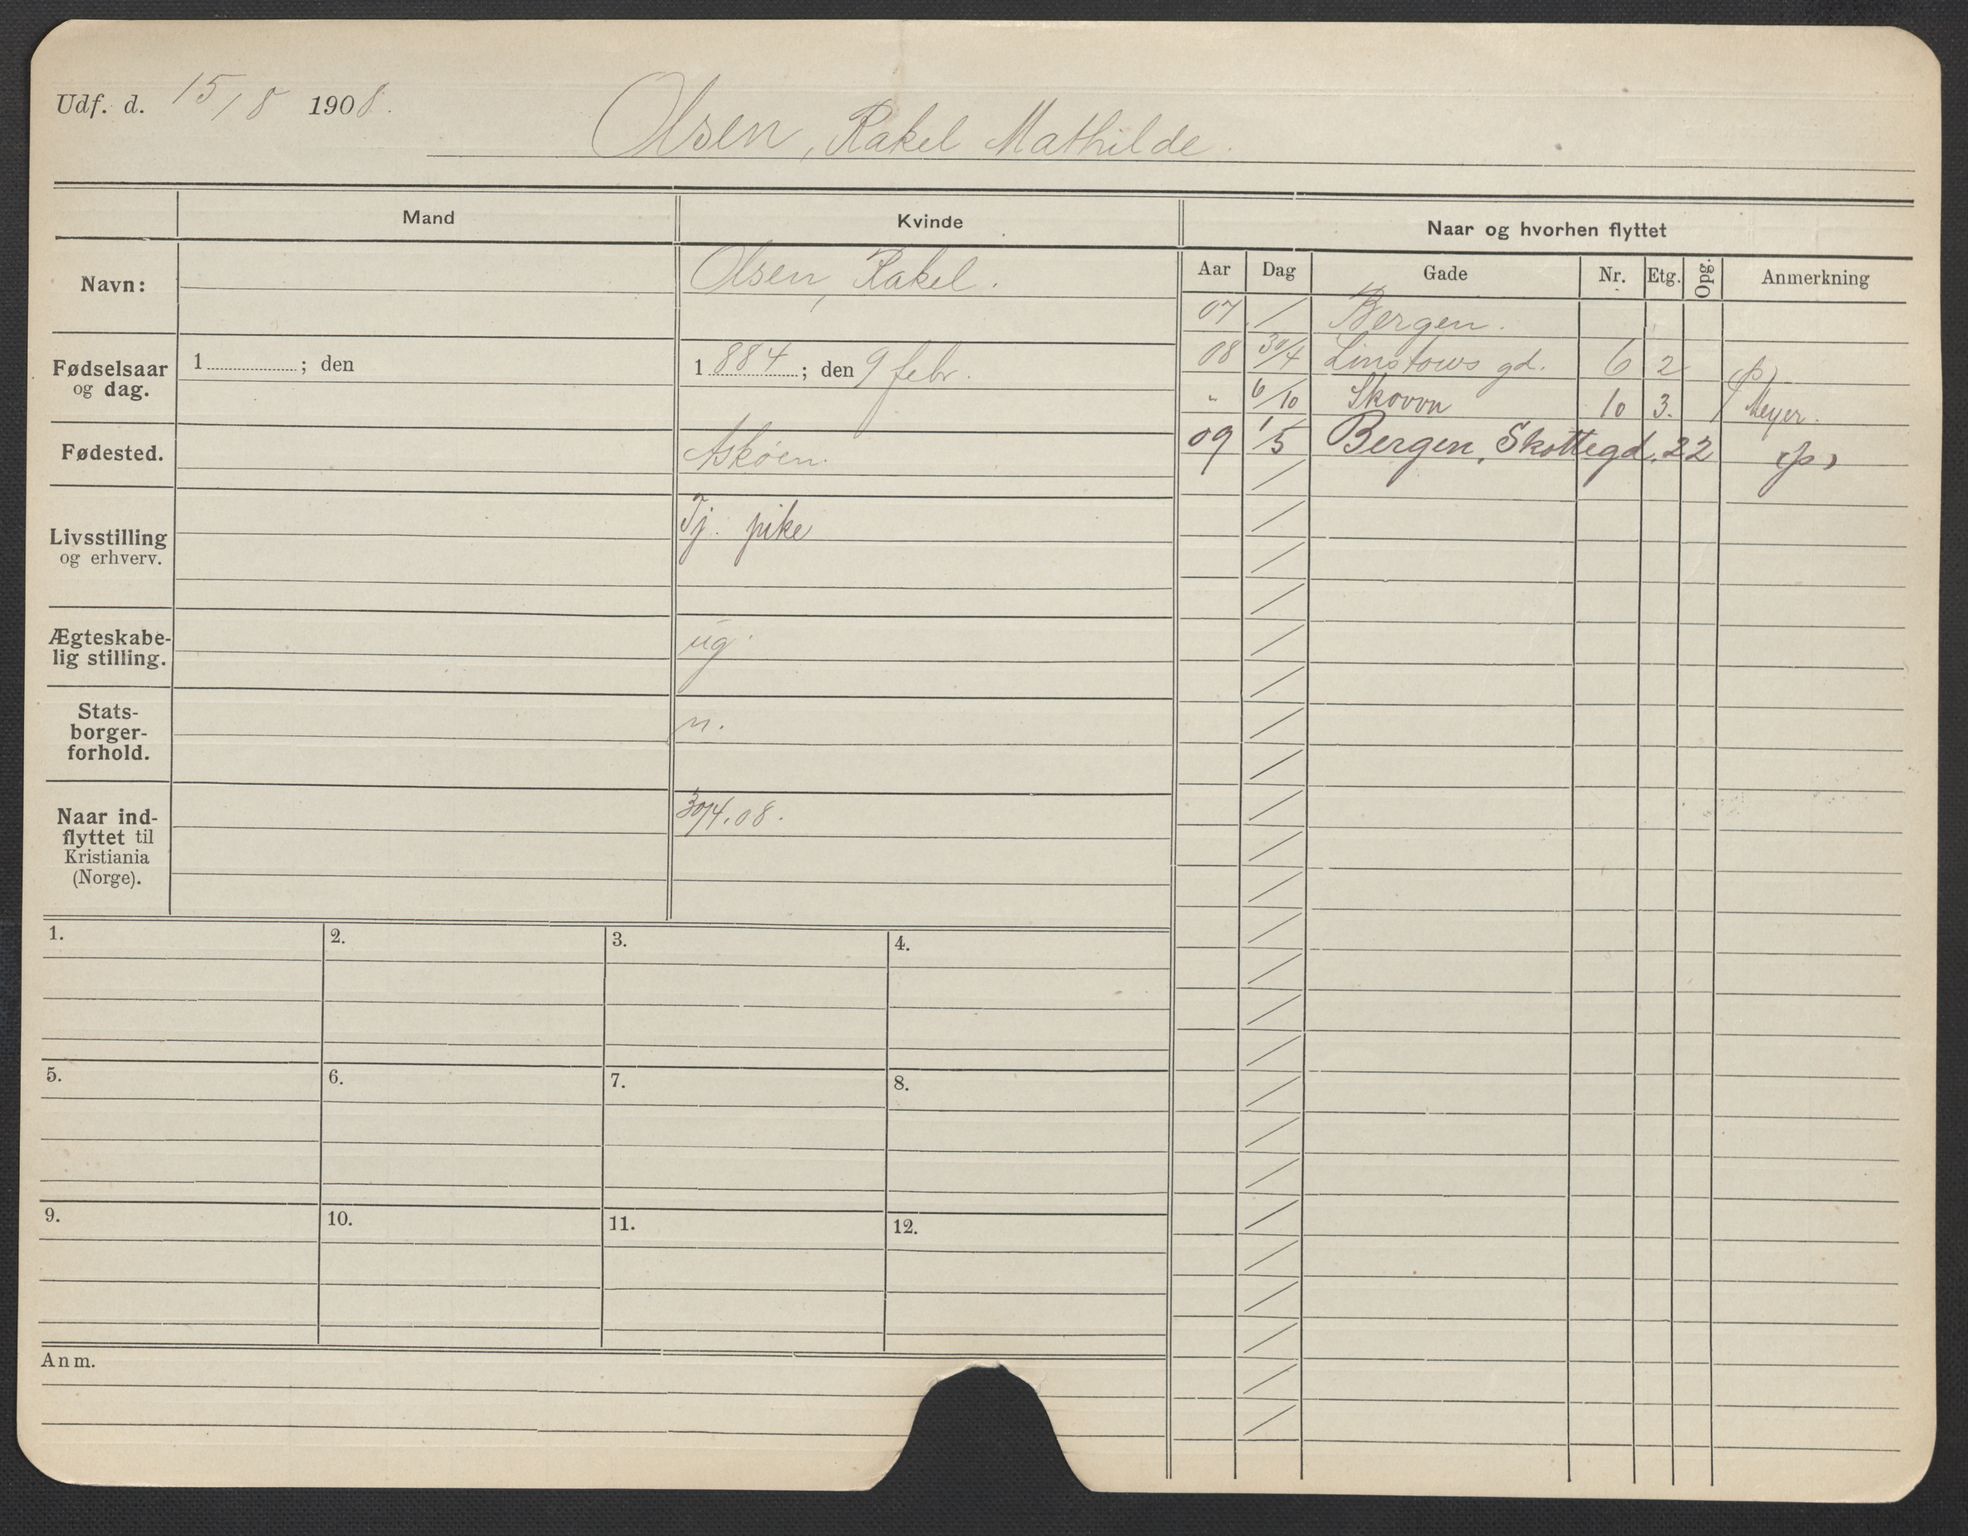 Udf. d. 15/8 1908.
Olsen, Rakel Mathilde.
Mand
Kvinde
Naar og hvorhen flyttet
Navn:
Olsen, Rakel.
Aar Dag Gade Nr. Etg. Opg. Anmerkning
07 / Bergen.
08 30/4 Linstows gd. 6 2 (p)
" 6/10 Skovvn 10 3. Meyer.
09 1/5 Bergen, Skottegd. 22 (p)
Fødselsaar
og dag.
1 ; den
1884; den 9 febr.
Fødested.
Askøen.
Livsstilling
og erhverv.
Tj. pike
Ægteskabe-
lig stilling.
ug.
Stats-
borger-
forhold.
n.
Naar ind-
flyttet til
Kristiania
(Norge).
30/4.08.
1. 2. 3. 4.
5. 6. 7. 8.
9. 10. 11. 12.
Anm.